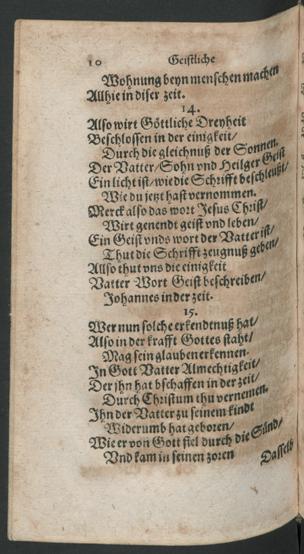 10 Geistliche
Wohnung beyn menschen machen
Allhie in diser zeit.
14.
Also wirt Göttliche Dreyheit
Beschlossen in der einigkeit/
Durch die gleichnuß der Sonnen.
Der Vatter/ Sohn vnd Heilger Geist
Ein licht ist/ wie die Schrifft beschleußt/
Wie du jetzt hast vernommen.
Merck also das wort Jesus Christ/
Wirt genendt geist vnd leben/
Ein Geist vnds wort der Vatter ist/
Thut die Schrifft zeugnuß geben/
Allso thut vns die einigkeit
Vatter Wort Geist beschreiben/
Johannes in der zeit.
15.
Wer nun solche erkendtnuß hat/
Also in der krafft Gottes staht/
Mag sein glauben erkennen.
In Gott Vatter Almechtigkeit/
Der jhn hat bschaffen in der zeit/
Durch Christum thu vernemen.
Ihn der Vatter zu seinem kindt
Widerumb hat geboren/
Wie er von Gott fiel durch die Sünd/
Vnd kam in seinen zoren
Dasselb